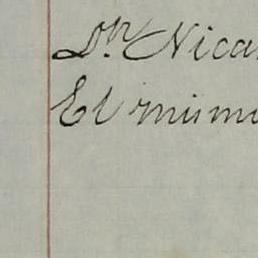 Dn. Nica
El mism